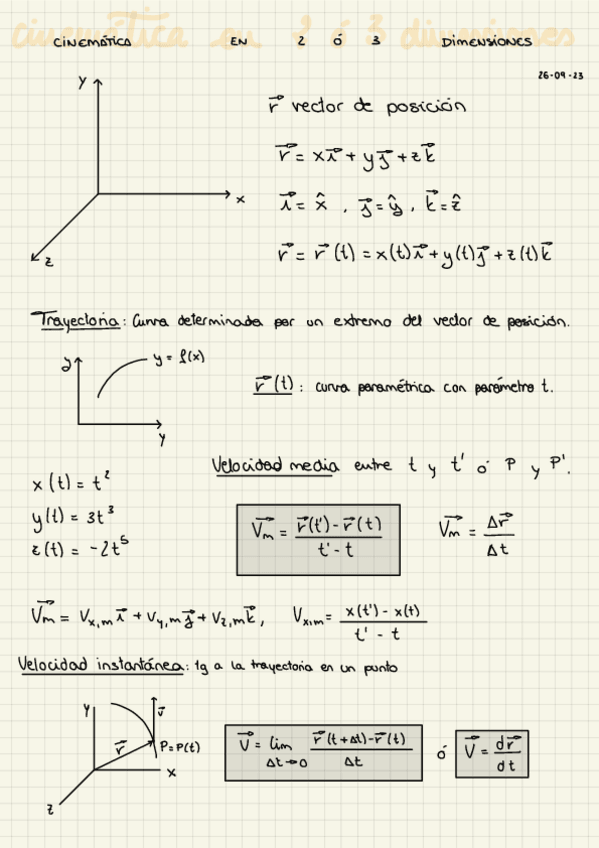 cinemática en 2 ó 3 dimensiones
CINEMÁTICA EN 2 Ó 3 DIMENSIONES
26-09-23
y
x
z
r⃗ vector de posición
r⃗ = xi⃗ + yj⃗ + zk⃗
i⃗ = x̂ , j⃗ = ŷ , k⃗ = ẑ
r⃗ = r⃗(t) = x(t)i⃗ + y(t)j⃗ + z(t)k⃗
Trayectoria: Curva determinada por un extremo del vector de posición.
y
y = f(x)
y
r⃗(t) : curva paramétrica con parámetro t.
Velocidad media entre t y t' ó P y P'.
x(t) = t²
y(t) = 3t³
z(t) = -2t⁵
V⃗m = (r⃗(t') - r⃗(t)) / (t' - t)
V⃗m = Δr⃗ / Δt
V⃗m = Vx,m i⃗ + Vy,m j⃗ + Vz,m k⃗, Vx,m = (x(t') - x(t)) / (t' - t)
Velocidad instantánea: tg a la trayectoria en un punto
y
v⃗
r⃗
P=P(t)
x
z
V⃗ = lim Δt→0 (r⃗(t+Δt) - r⃗(t)) / Δt ó V⃗ = dr⃗ / dt